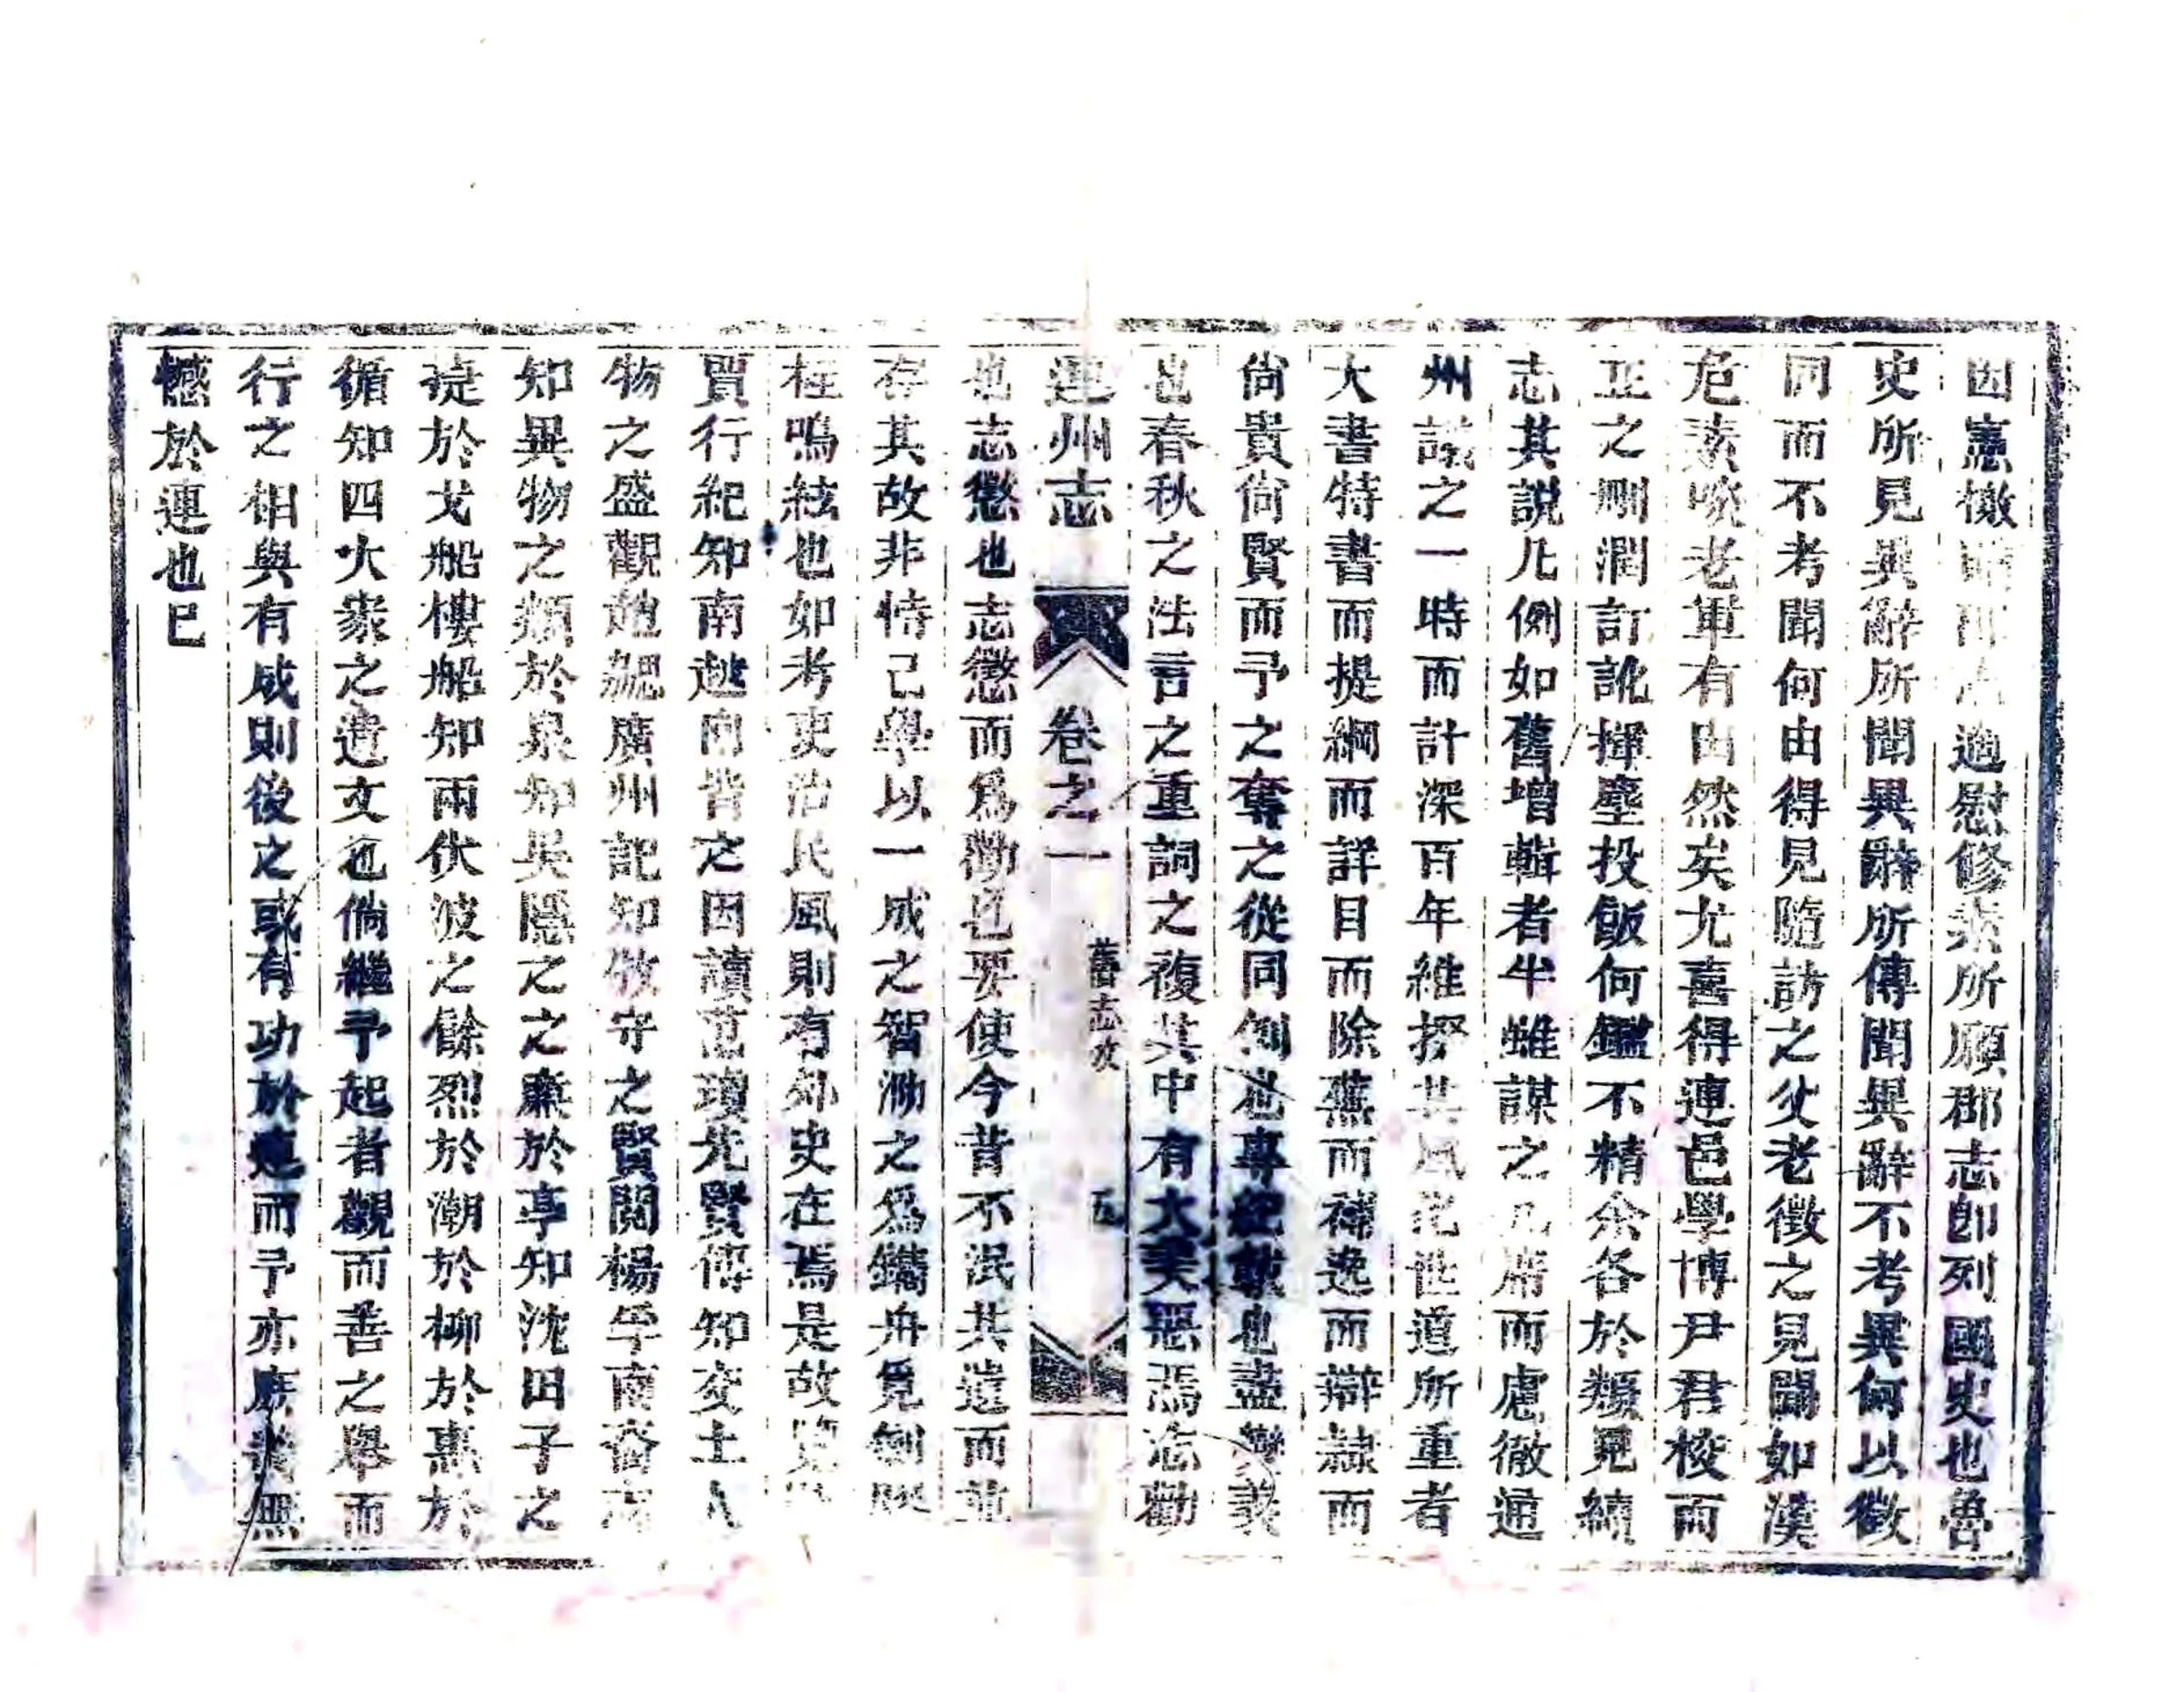 因憲檄 適慰修 所願郡志卽列國史也魯
史所見異辭所聞異辭所傳聞異辭不考異何以徵
同而不考聞何由得見隨訪之父老徵之見聞如漢
危素 老軍有由然矣尤喜得連邑學博尹君校而
正之刪潤訂訛揮塵投飯何鑑不精余各於類見續
志其說凡例如舊增輯者半雖謀之 而慮徹通
州議之一時而計深百年維 其風 世道所重者
大書特書而提綱而詳目而除蕪而補逸而辯隷而
尙貴尙賢而予之奪之從同例也專紀載也盡 義
也春秋之法言之重詞之複其中有大美惡焉志勸
連州志 卷之一 舊志 五
也志懲也志懲而爲勸也要使今昔不泯其遺而並
存其故非恃己學以一成之智泐之爲鐫舟覓劍
柱鳴絃也如考吏治民風則有外史在焉是故
賈行紀知南越 之因讀范瑗先賢傳知交土人
物之盛觀 廣州記知牧守之賢閱楊孚南裔
知異物之類於泉知吳隱之之廉於亭知沈田子之
於戈船樓船知兩伏波之餘烈於潮於柳於惠於
循知四大家之遺文也倘繼予起者觀而善之舉而
行之相與有成則後之或有功於連而予亦庶 無
憾於連也已